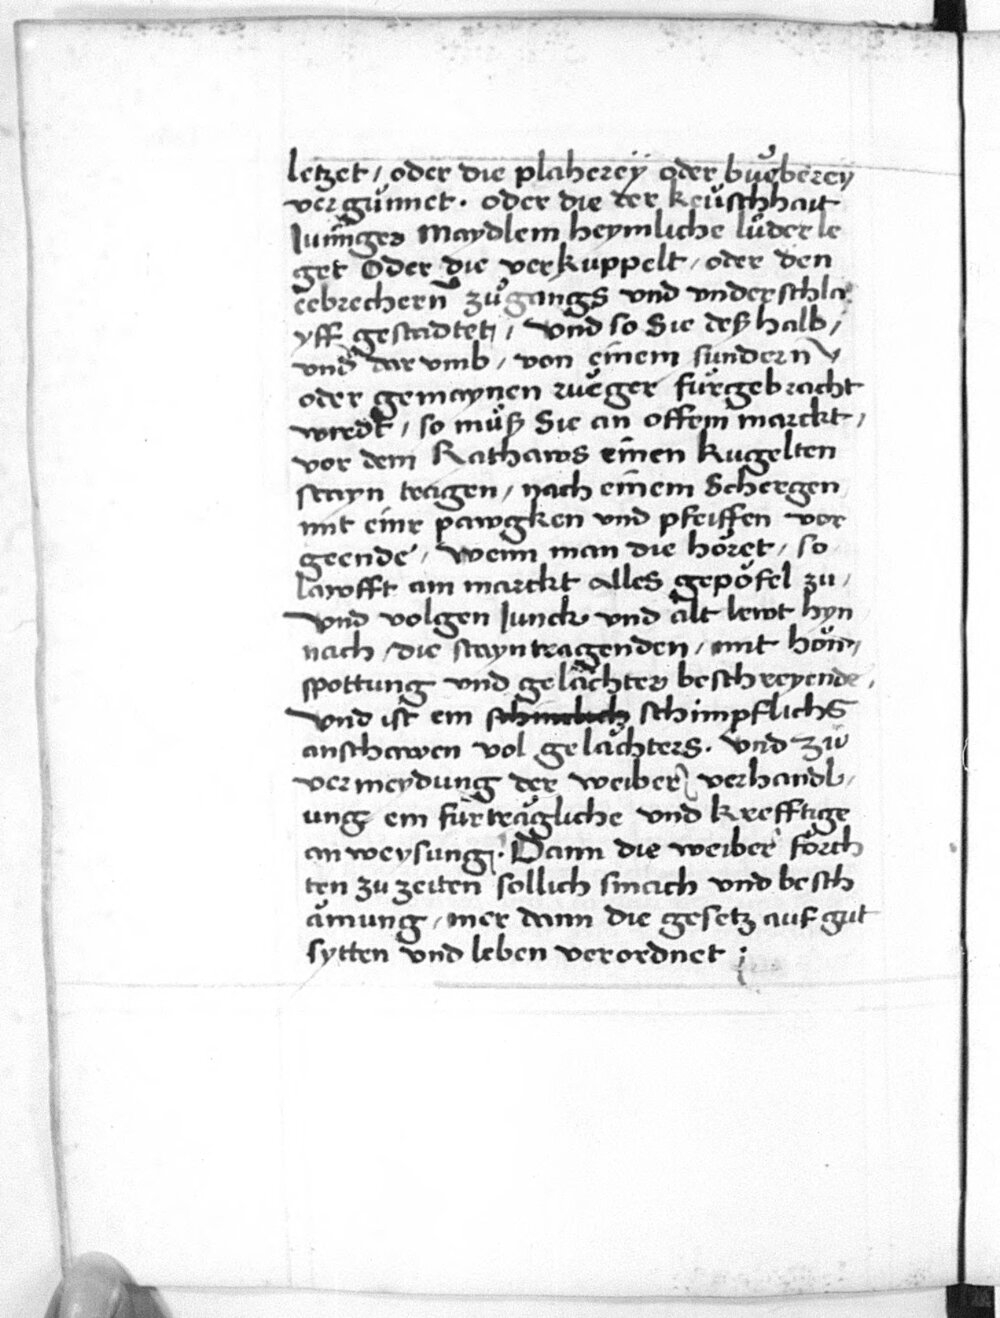 letzet / oder die plaherey oder bueberey
vergünnet. oder die der keüschhait
Iunnges Maydlem heymliche lüderle
get Oder die verkuppelt / oder den
eebrechern zůgangs vnd vnderschla
yff gestadtet /, vnd so Sie deß halb /
vnd dar vmb / von einem sundern
oder gemaynen rüeger fürgebracht
wirdt / so můß Sie an offem marckt /
vor dem Rathaws einen kugelten
stayn tragen / nach einem Schergen
mit einr pawgken vnd pfeiffen vor
geende / wenn man die höret / so
lawfft am marckt alles gepöfel zu /
vnd volgen Iunck vnd alt lewt hyn
nach / die stayntragenden / mit hön /
spottung vnd gelächter beschreyende /
vnd ist ein schimpflichs
anschawen vol gelächters. vnd zů
vermeydung der weiber verhandl /
ung ein fürträgliche vnd krefftige
anweysung. Dann die weiber förch
ten zu zeiten sollich smach vnd besch
ämung / mer dann die gesetz auf gut
sytten vnd leben verordnet ;